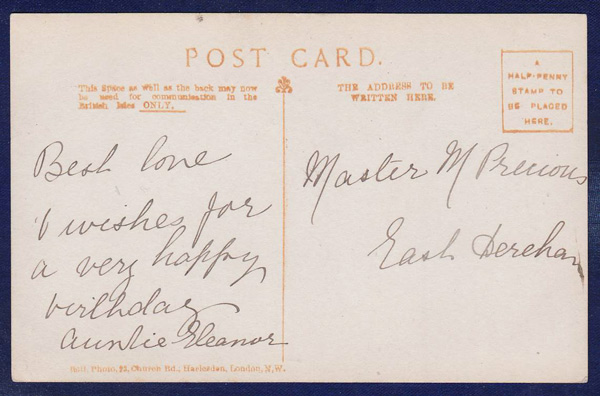 POST CARD.
This Space as well as the back may now
be used for communication in the
British Isles ONLY.
THE ADDRESS TO BE
WRITTEN HERE.
A
HALF-PENNY
STAMP TO
BE PLACED
HERE.
Best love
& wishes for
a very happy
birthday
Auntie Eleanor
Master M Precious
East Dereham
Photo, Church Rd., Harlesden, London, N.W.